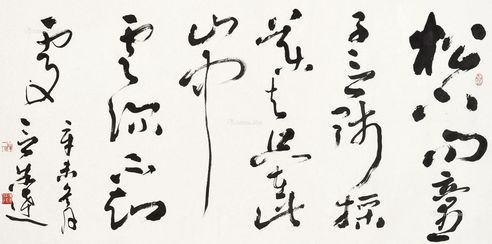 松下問童
子言師採
藥去只在此
山中
雲深不知
處
辛未冬月